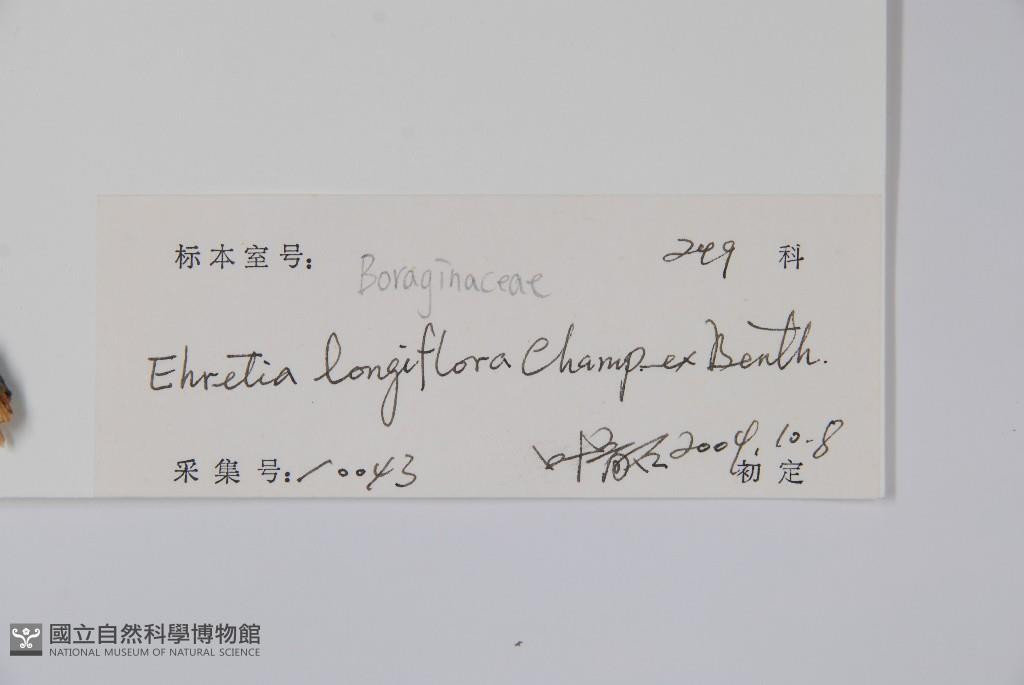 标本室号: 249 科
Boraginaceae
Ehretia longiflora Champ. ex Benth.
叶 2004.10.8
采集号: 10043 初定
國立自然科學博物館
NATIONAL MUSEUM OF NATURAL SCIENCE